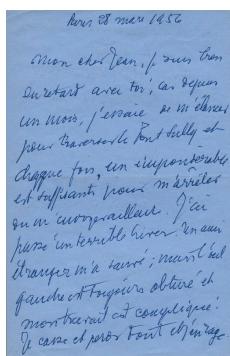 Paris 28 mars 1956
Mon cher Jean, je suis bien
en retard avec toi, car depuis
un mois, j'essaie de m'élancer
pour traverser le Pont Sully et
chaque fois, un impondérable
est suffisant pour m'arrêter
ou m'
J'ai
passé un terrible hiver. Un ami
étranger m'a sauvé; mais l'œil
gauche est toujours obturé et
mon travail est compliqué.
Je casse et perds tout